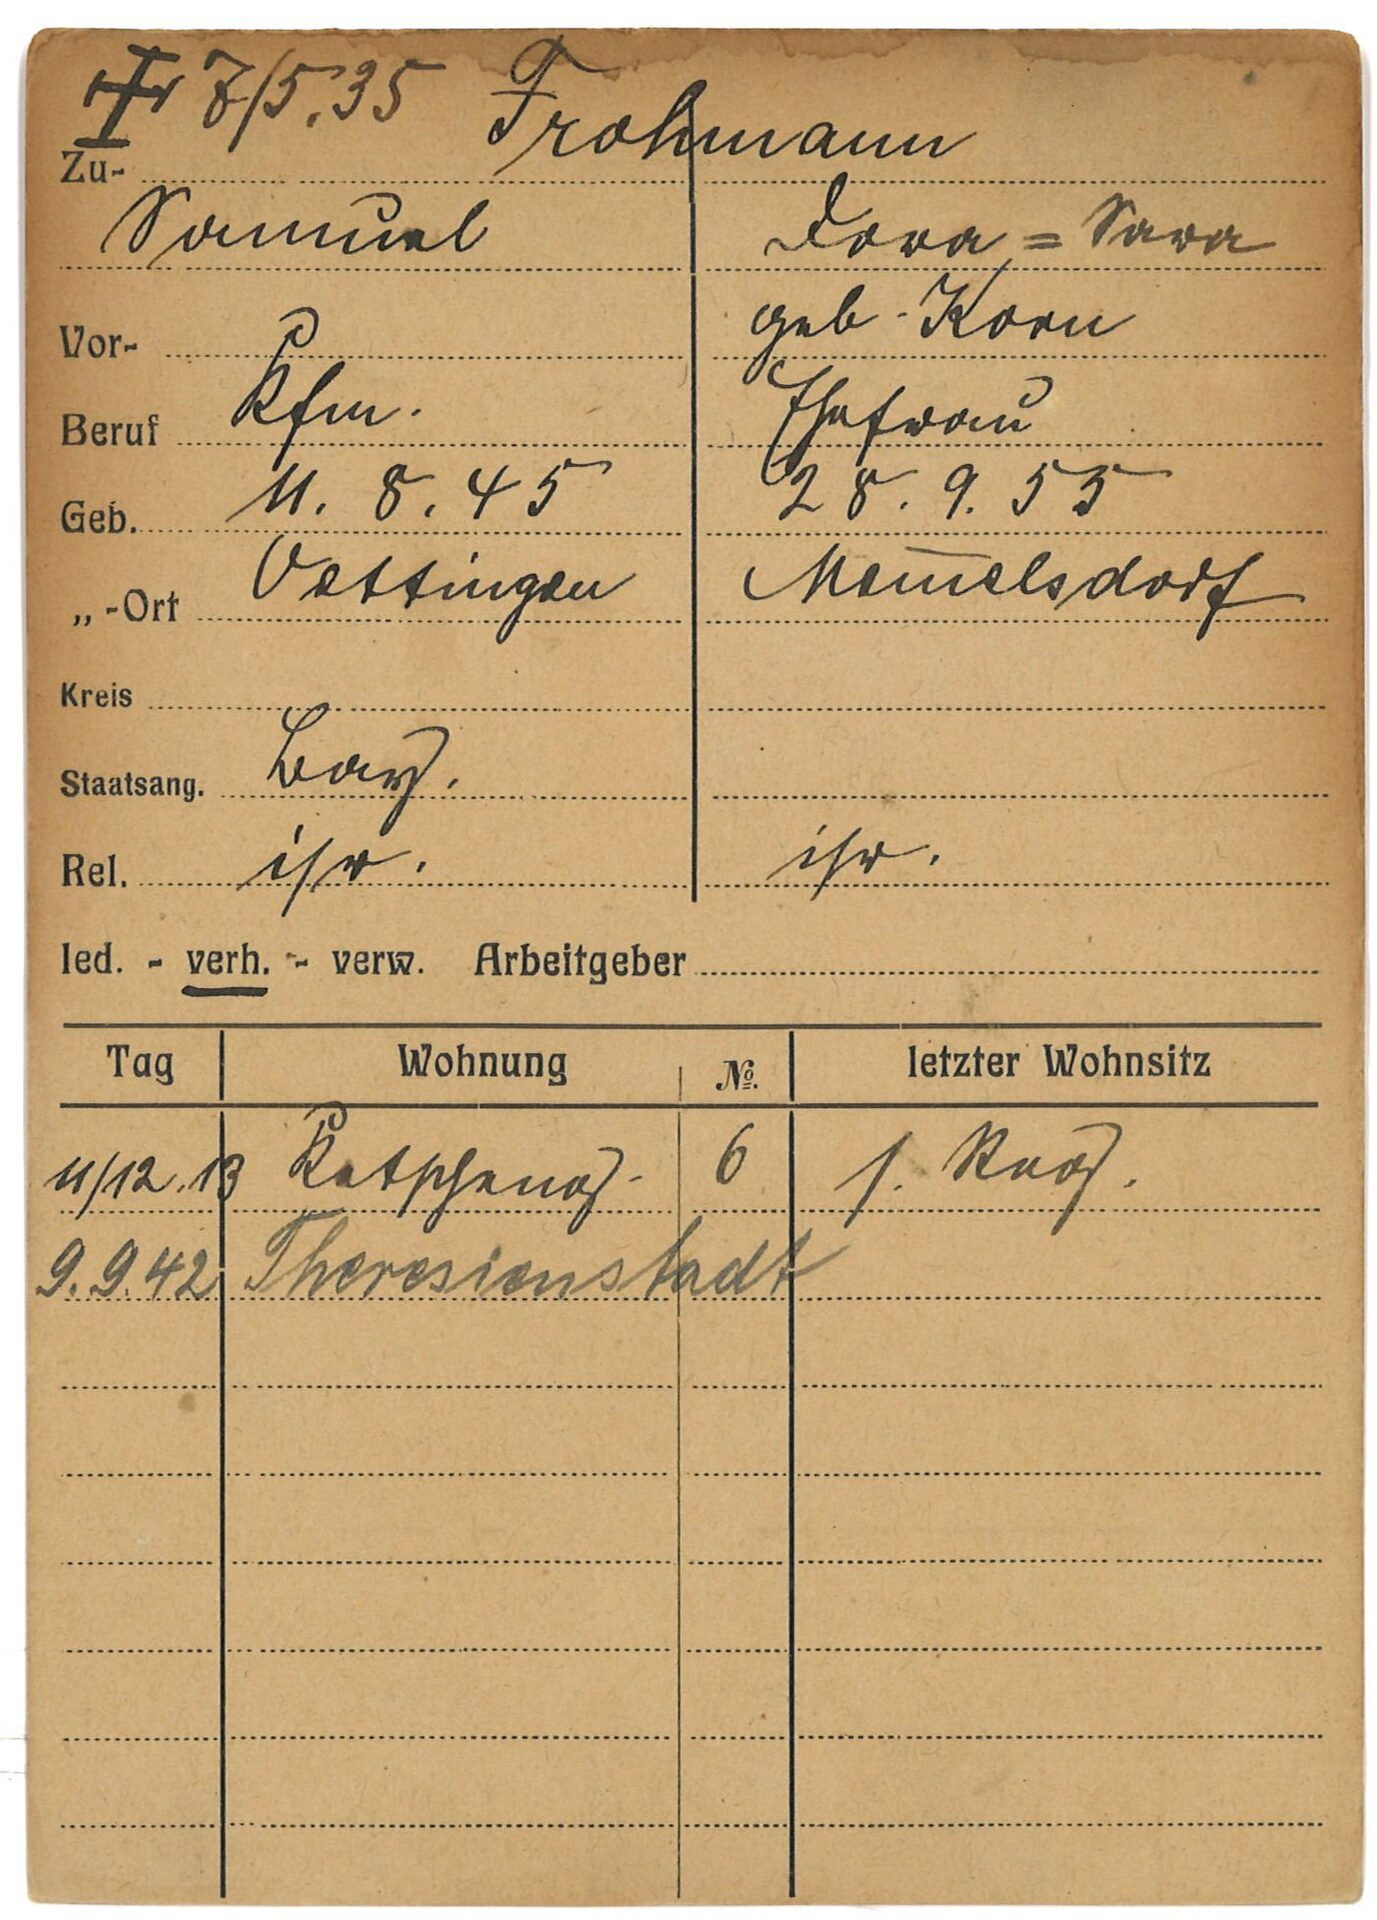 † 7/5.35 Frohmann
Zu-
Samuel Dora = Sara
geb. Korn
Vor-
Beruf Kfm. Ehefrau
Geb. 11. 8. 45 28. 9. 55
„-Ort Oettingen Mem̅elsdorf
Kreis
Staatsang. bay.
Rel. isr. isr.
led. - verh. - verw. Arbeitgeber
Tag Wohnung No. letzter Wohnsitz
11/12.13 Ketscheng. 6 s. Reg.
9.9.42 Theresienstadt